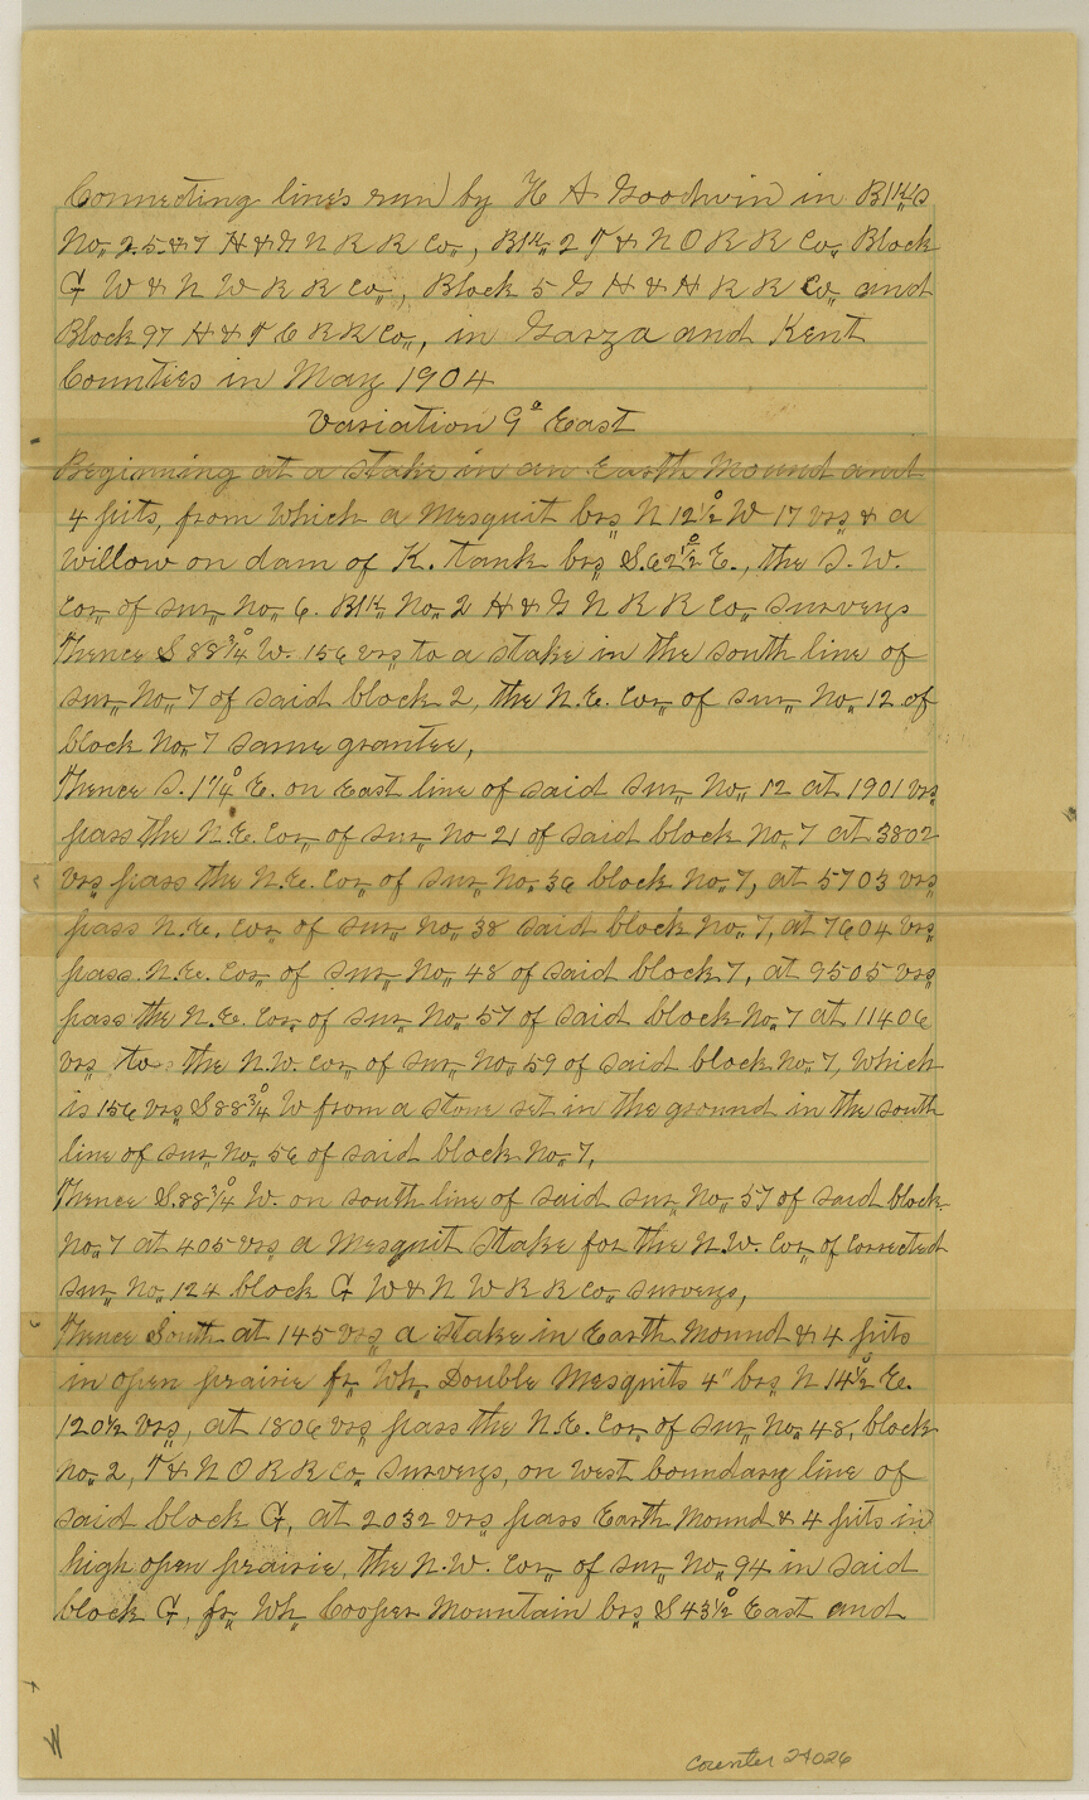 Connecting lines run by H A Goodwin in Blk's
No. 2.5.&7 H & G N R R Co., Blk 2 T & N O R R Co. Block
G W & N W R R Co., Block 5 G H & H R R Co. and
Block 97 H & T C R R Co., in Garza and Kent
Counties in May 1904
Variation 9° East
Beginning at a stake in an Earth Mound and
4 pits, from which a Mesquit brs N 12½° W 17 vrs & a
willow on dam of K. tank brs S. 62½° E., the S. W.
Cor. of sur. No. 6. Blk No. 2 H & G N R R Co. surveys
Thence S 88¾° W. 156 vrs to a stake in the south line of
sur. No. 7 of said block 2, the N.E. Cor. of sur. No. 12 of
block No. 7 same grantee,
Thence S. 1¼° E. on East line of said sur. No. 12 at 1901 vrs
pass the N.E. Cor. of sur. No 21 of said block No. 7 at 3802
vrs pass the N.E. Cor. of sur. No. 36 block No. 7, at 5703 vrs
pass N.E. Cor. of sur. No. 38 said block No. 7, at 7604 vrs
pass N.E. Cor. of sur. No. 48 of said block 7, at 9505 vrs
pass the N.E. Cor. of sur. No. 57 of said block No. 7 at 11406
vrs to the N.W. Cor. of sur. No. 59 of said block No. 7, which
is 156 vrs S 88¾° W from a stone set in the ground in the south
line of sur. No. 56 of said block No. 7,
Thence S. 88¾° W. on south line of said sur. No. 57 of said block
No. 7 at 405 vrs a Mesquit stake for the N.W. Cor. of corrected
sur. No. 124 block G W & N W R R Co. surveys,
Thence South at 145 vrs a stake in Earth Mound & 4 pits
in open prairie fr. Wh. Double Mesquits 4" brs N 14½° E.
120½ vrs, at 1806 vrs pass the N.E. Cor. of sur. No. 48, block
No. 2, T & N O R R Co. surveys, on west boundary line of
said block G, at 2032 vrs pass Earth Mound & 4 pits in
high open prairie, the N.W. Cor. of sur. No. 94 in said
block G, fr. Wh. Cooper Mountain brs S 43½° East and
counter 24026